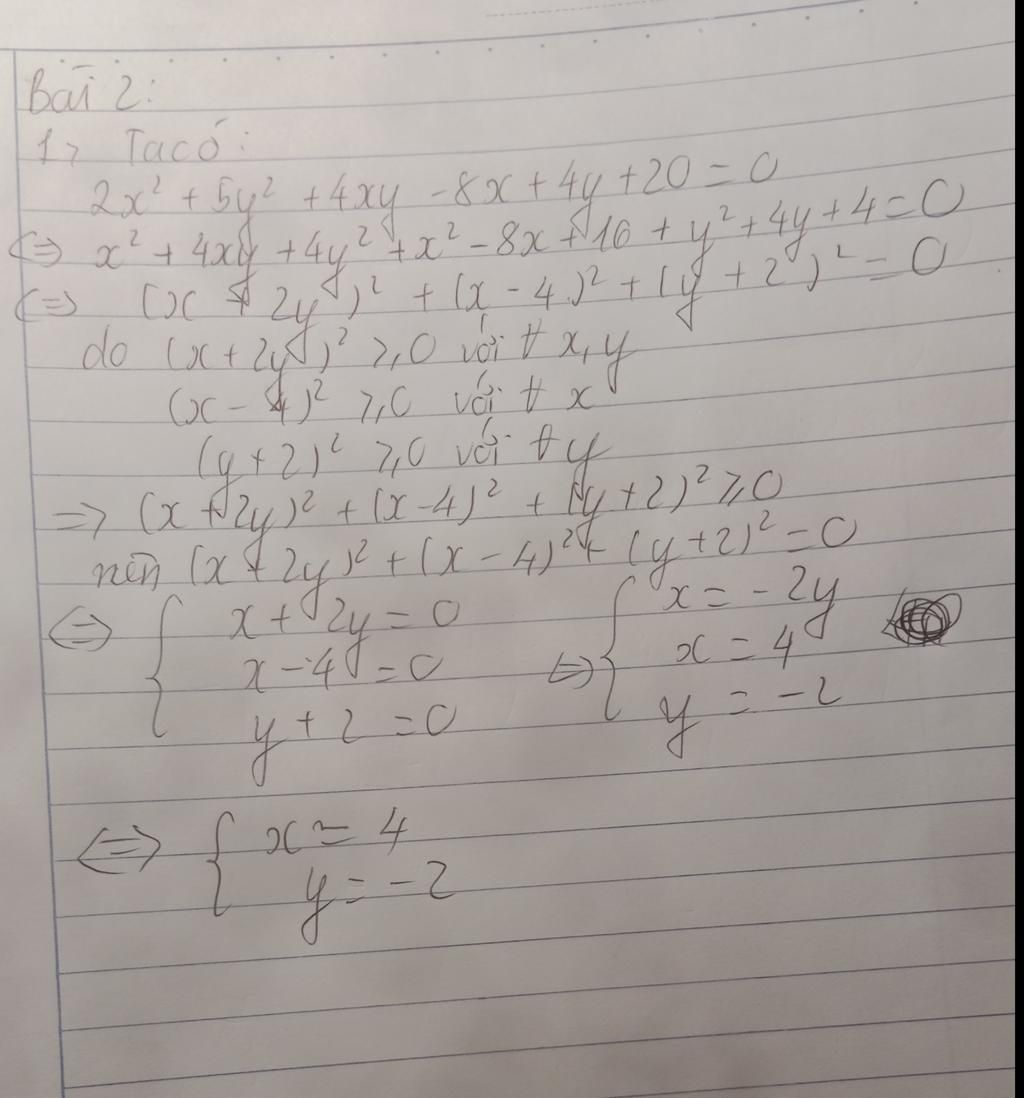 Bài 2:
1, Ta có:
2x² + 5y² + 4xy - 8x + 4y + 20 = 0
<=> x² + 4xy + 4y² + x² - 8x + 16 + y² + 4y + 4 = 0
<=> (x + 2y)² + (x - 4)² + (y + 2)² = 0
do (x + 2y)² ≥ 0 với ∀ x, y
(x - 4)² ≥ 0 với ∀ x
(y + 2)² ≥ 0 với ∀ y
=> (x + 2y)² + (x - 4)² + (y + 2)² ≥ 0
nên (x + 2y)² + (x - 4)² + (y + 2)² = 0
<=> { x + 2y = 0 <=> { x = -2y
x - 4 = 0 x = 4
y + 2 = 0 y = -2
<=> { x = 4
y = -2